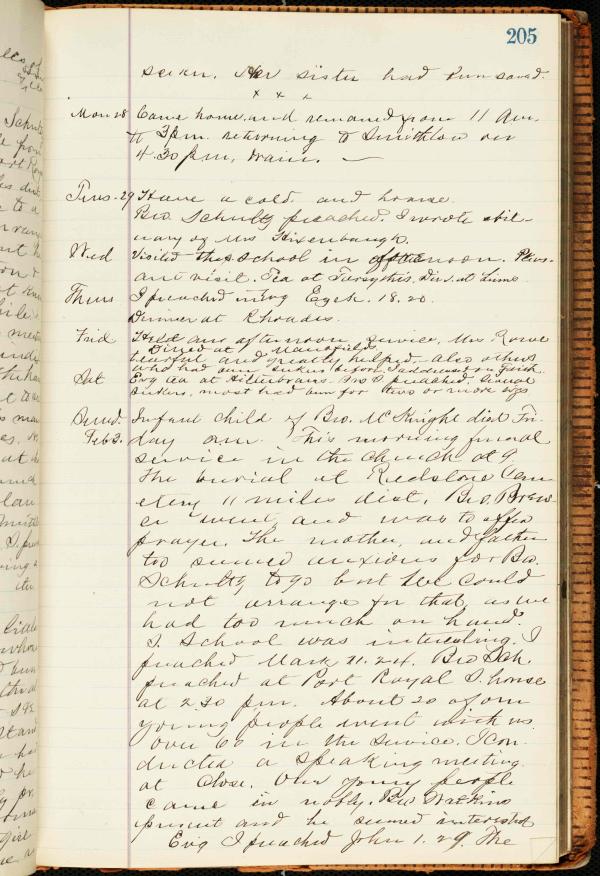 205
seeker. Her sister had been saved.
x x x
Mon 28 Came home and remained from 11 Am.
to 3 pm. returning to Smithton on
4.30 pm, train. —
Tues. 29 Have a cold and hoarse.
Bro. Schultz preached. I wrote obit-
uary of Mrs Hixenbaugh.
Wed Visited the school in afternoon. Pleas-
ant visit. Tea at Din. at
Thurs I preached mng Ezek. 18.20.
Dinner at Rhoades.
Frid Held an afternoon service, Mrs Rowe
Dined at Mansfields
tearful and greatly helped. Also others
who had been seekers before. I addressed on
Sat Evg tea at I preached. Several
seekers, most had been for two or more evgs
Sund. Infant child of Bro. McKnight died Fri-
Feb 3. day am. This morning funeral
service in the church at 9
The burial at Redstone Cem-
etery 11 miles dist. Bro. Brew
er went, and was to offer
prayer. The mother, and father
too seemed anxious for Bro.
Schultz to go but we could
not arrange for that, as we
had too much on hand.
S. School was interesting. I
preached Mark 11.24. Bro Sch.
preached at Port Royal S. house
at 2 30 pm. About 20 of our
young people went with us
over 60 in the service. I con-
ducted a speaking meeting
at close. Our young people
came in nobly. Bro Watkins
present and he seemed interested
Evg I preached John 1.29. The